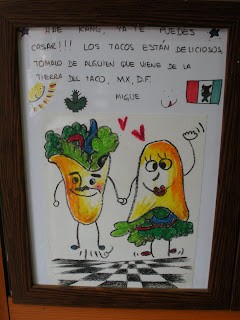 HAE KANG, YA TE PUEDES
CASAR!!! LOS TACOS ESTÁN DELICIOSOS,
TOMALO DE ALGUIEN QUE VIENE DE LA
TIERRA DEL TACO, MX, D.F.
MIGUE